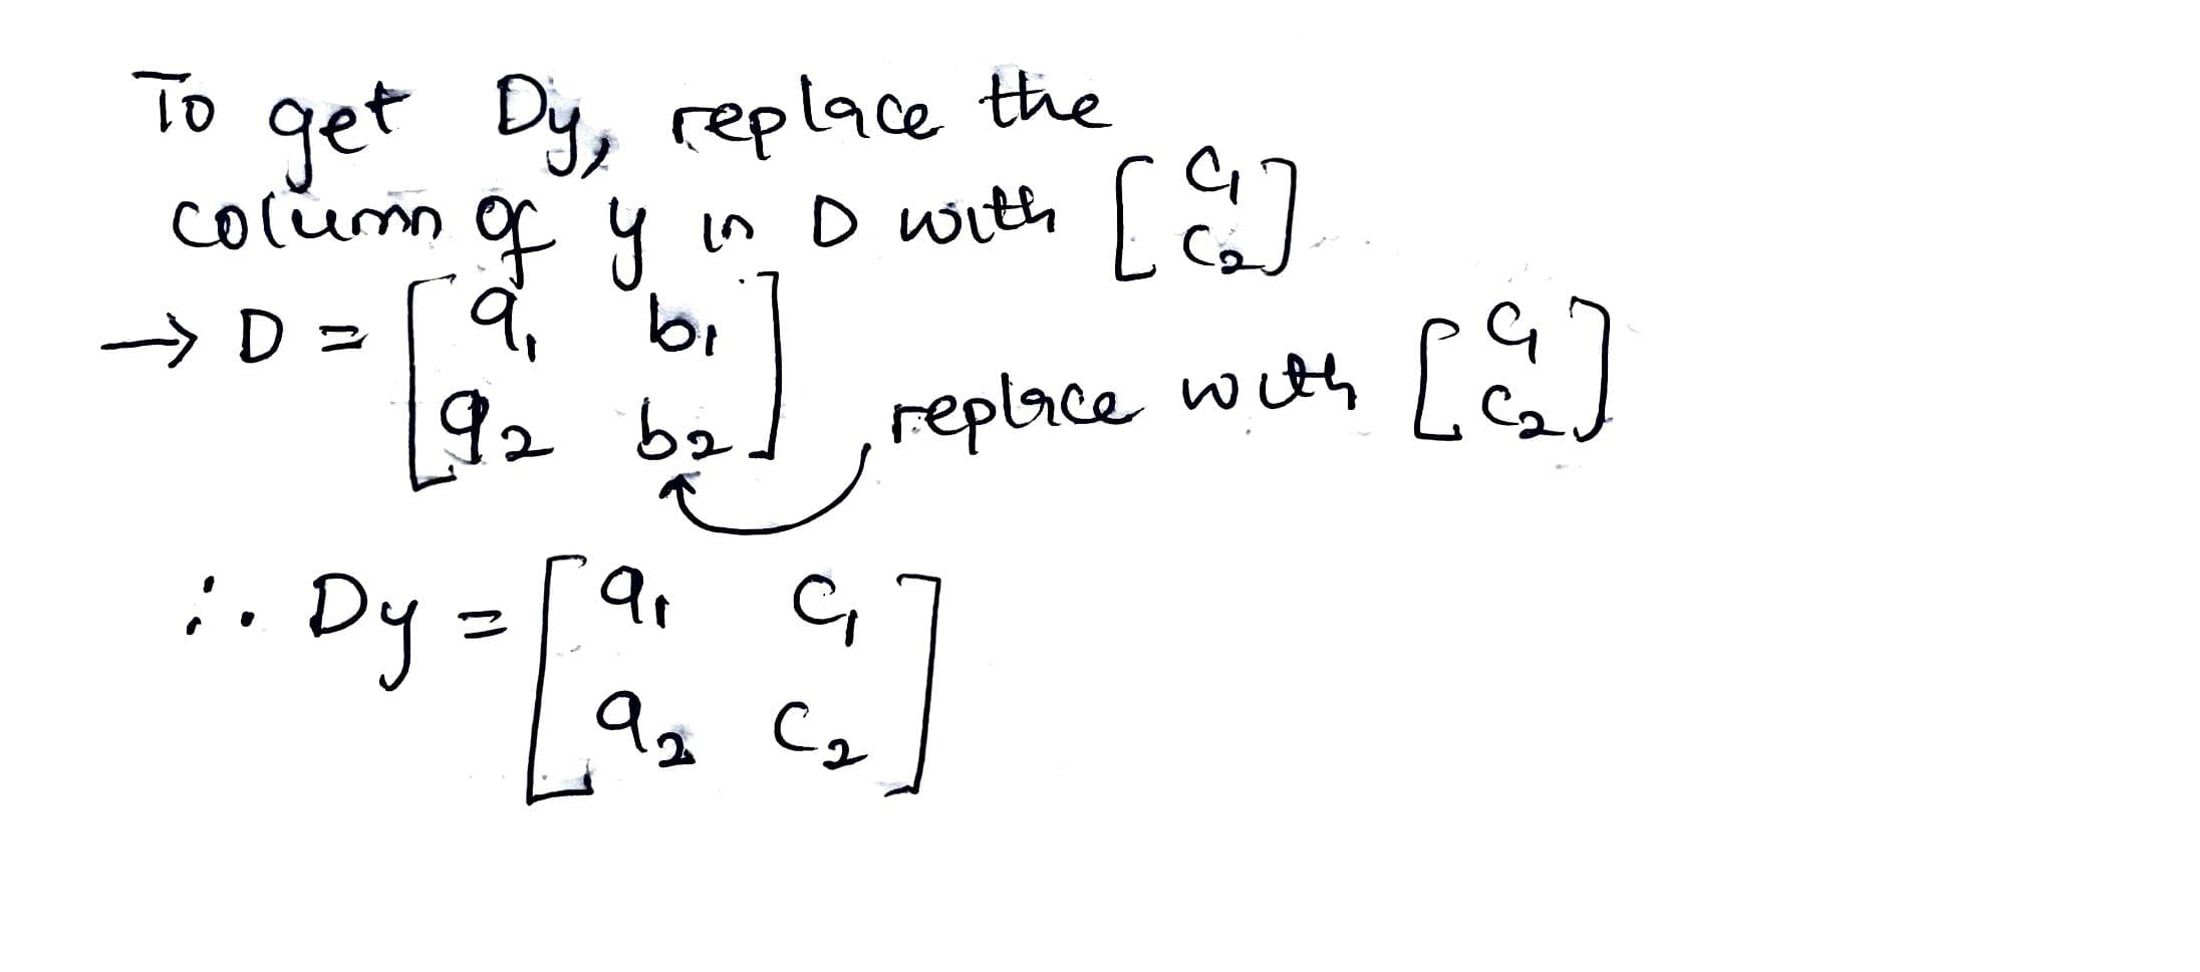 To get Dy, replace the
column of y in D with [c1 c2]
→ D = [a1 b1
a2 b2] replace with [c1 c2]
∴ Dy = [a1 c1
a2 c2]